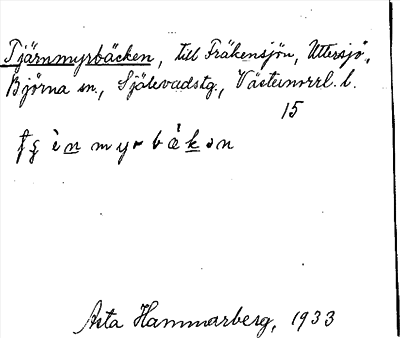 Tjärnmyrbäcken, till Fräkensjön, Uttersjö,
Björna sn., Själevadstg., Västernorrl. l.
15
Asta Hammarberg, 1933